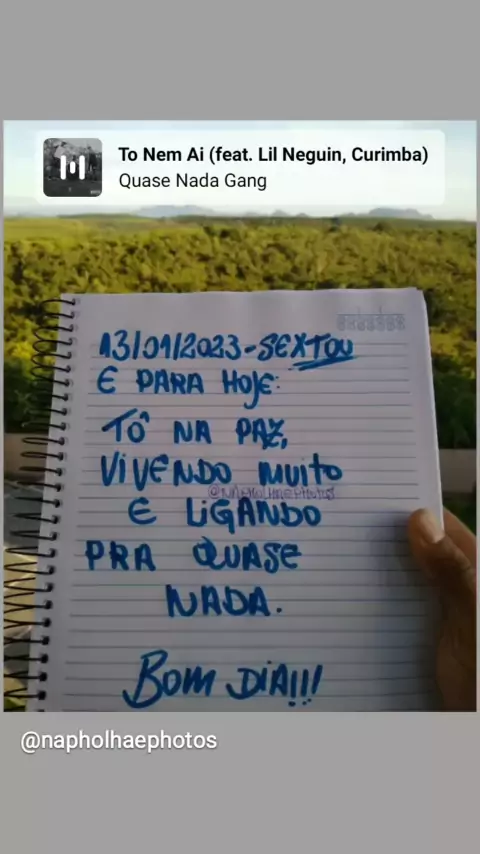 To Nem Ai (feat. Lil Neguin, Curimba)
Quase Nada Gang
13/01/2023-SEXTOU
E PARA HOJE:
TÔ NA PAZ,
VIVENDO MUITO
@NAPHOLHAEPHOTOS
E LIGANDO
PRA QUASE
NADA.
BOM DIA!!!
@napholhaephotos